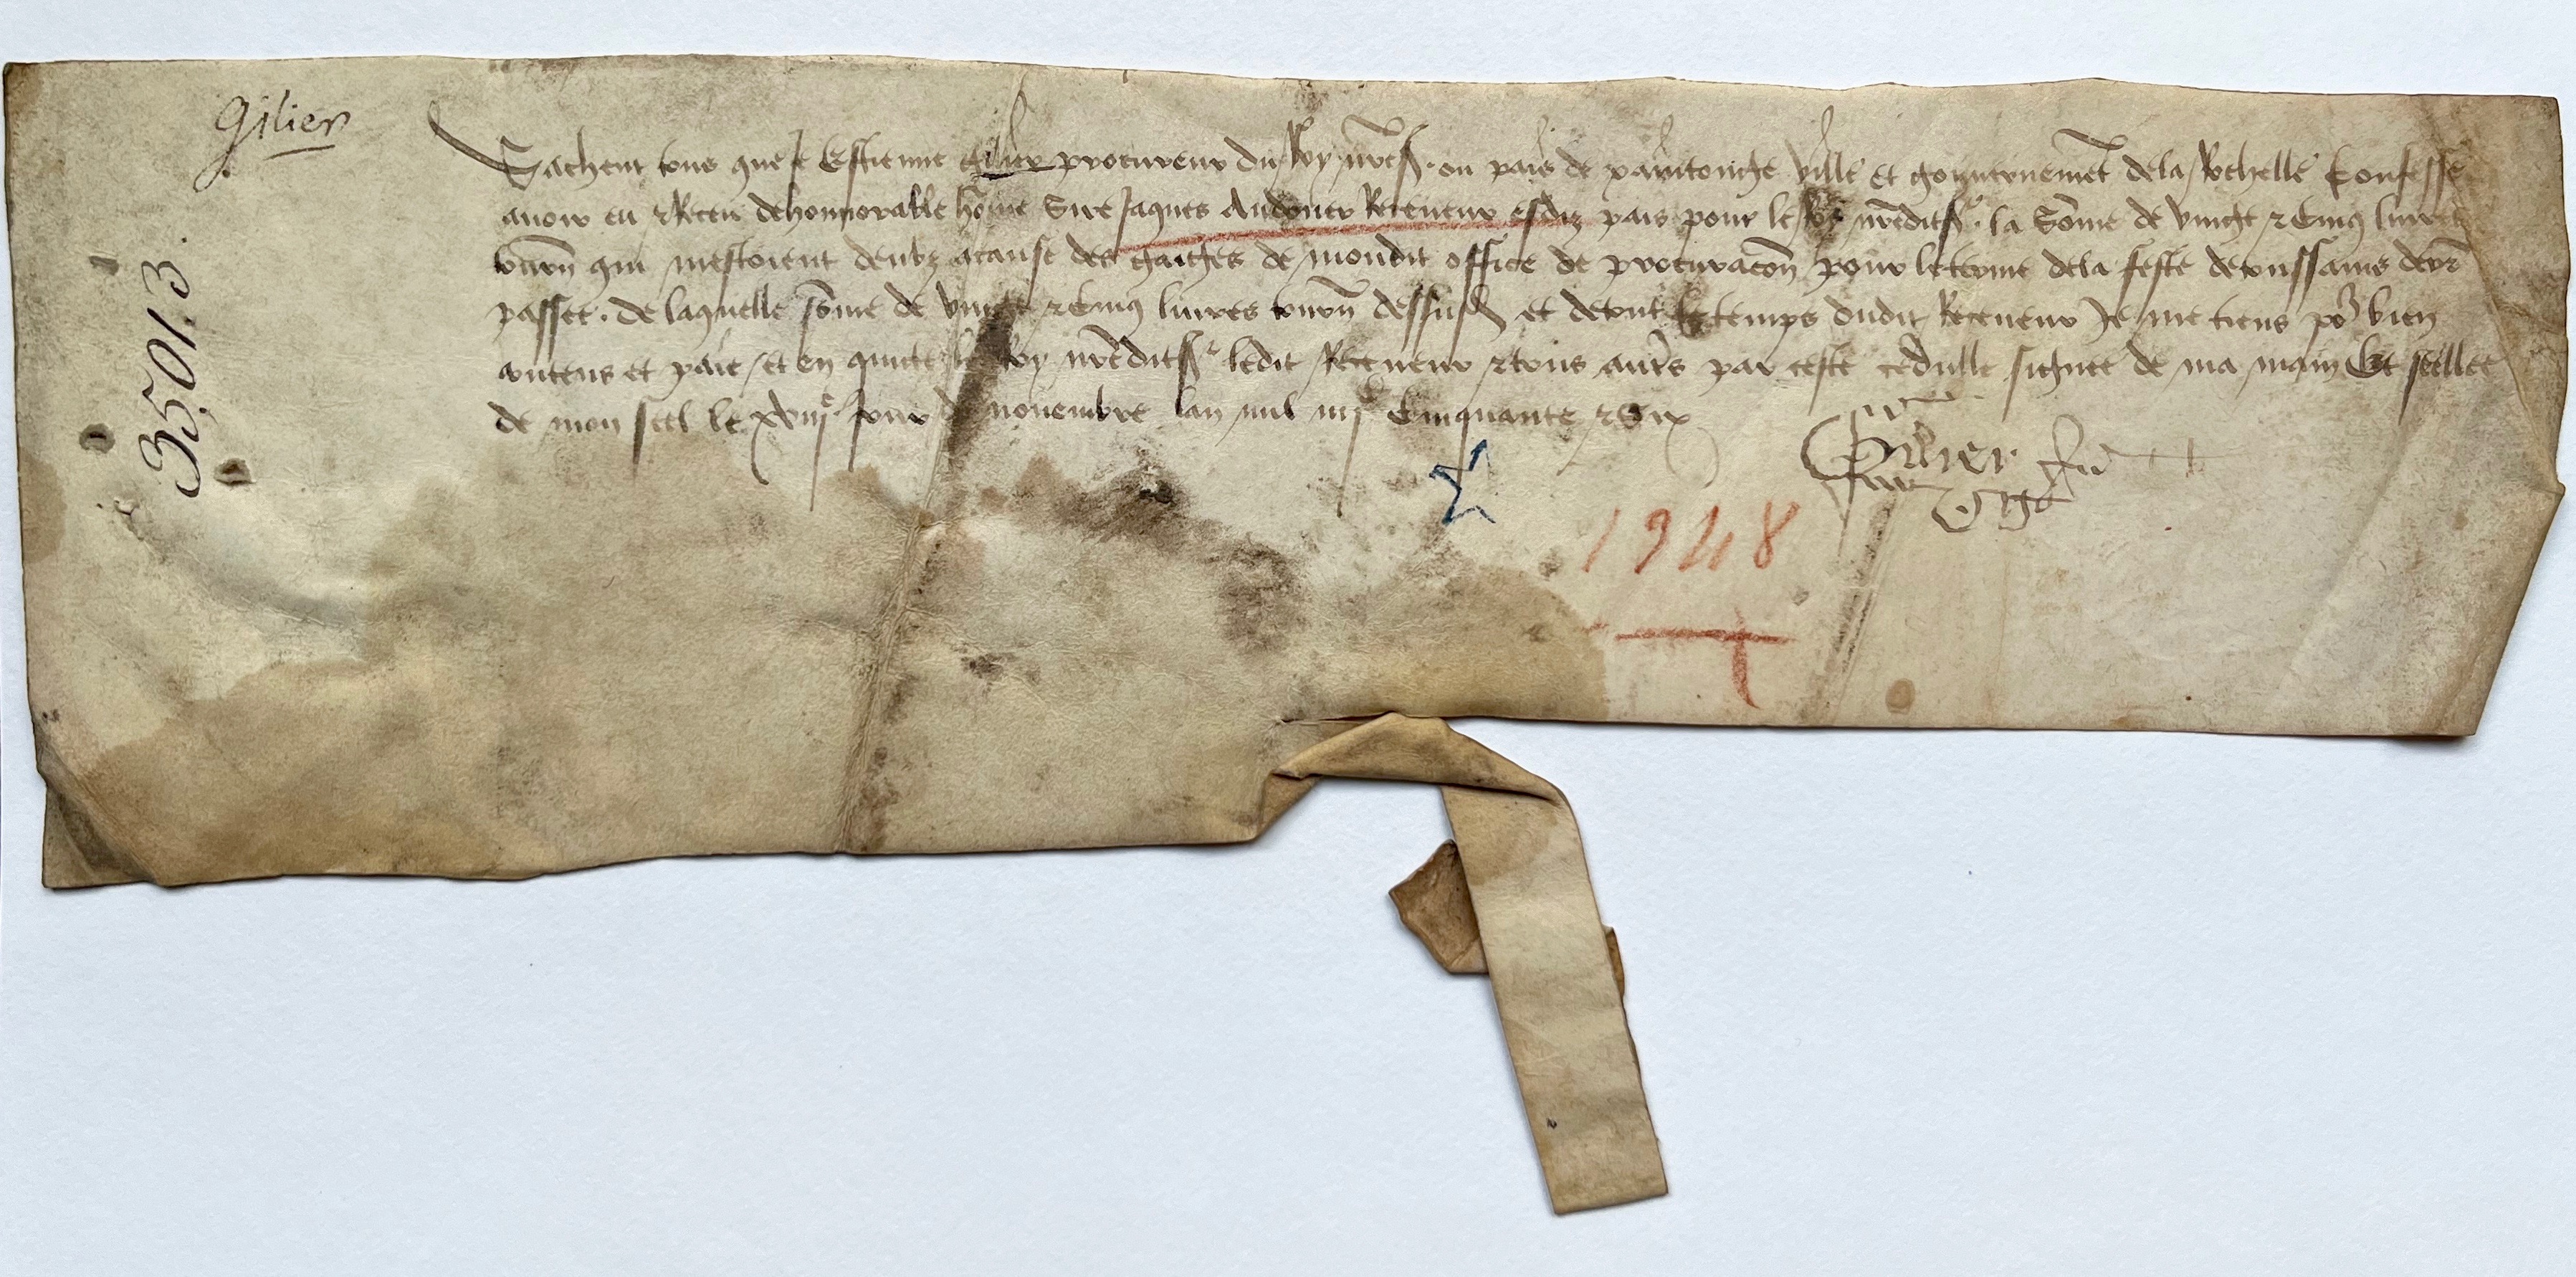 Gilier
35013.
Sachent tous que Je Estienne Gilier procureur du Roy nr̃e sr ou pais de xainctonge ville et gouvernemẽt de la Rochelle Confesse
avoir eu & Receu de honnorable hõme Sire Jaques Audouer Receveur esdiz pais pour le Roy nr̃edit sr la Sõme de vingt & Cinq livres
tourñ qui mestoient deubz a cause des gaiges de mondit office de procuracoñ pour le terme de la feste de toussains derr̃
passee. de laquelle sõme de vingt & Cinq livres tourñ dessusd et de tout le temps dudit Receveur Je me tiens por bien
contens et paie et en quicte le Roy nr̃edit sr ledit Receveur & tous aur̃s par ceste cedulle signee de ma main Et seellee
de mon seel le xviije jour de novembre lan mil iiijc Cinquante & Six
Gilier
1948